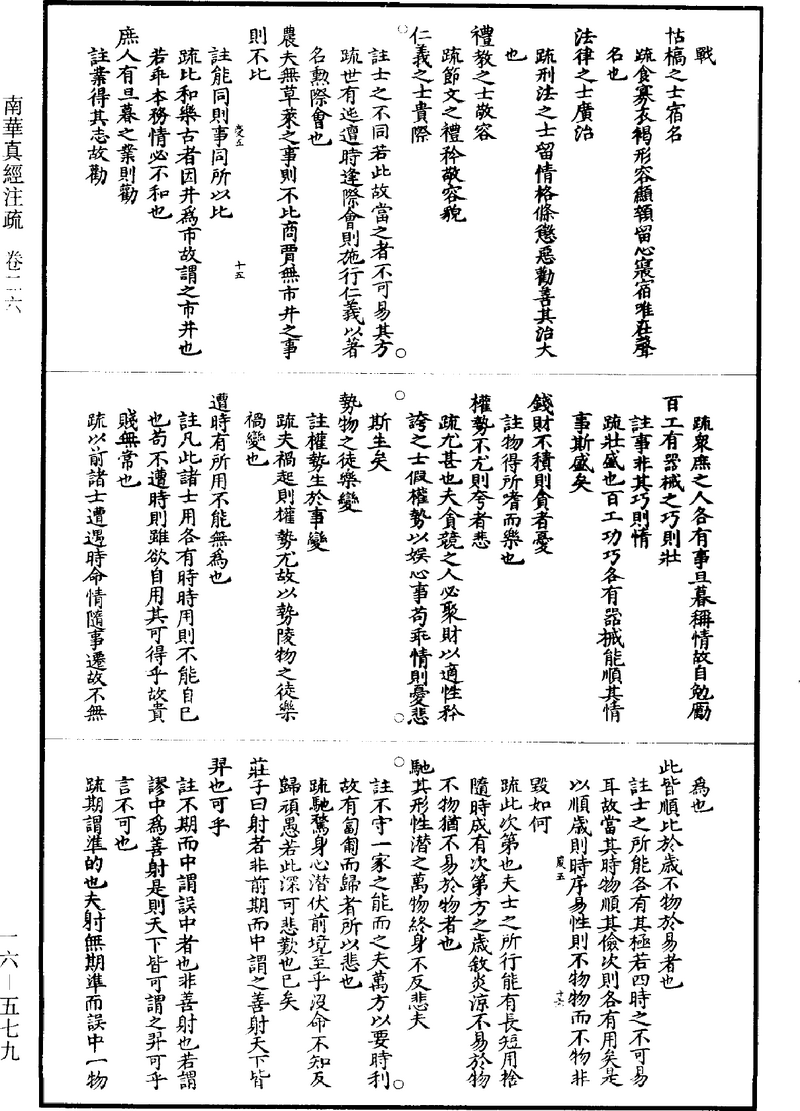 戰
怙槁之士宿名
疏食寡衣褐形容顦顇留心寢宿唯在聲
名也
法律之士廣治
疏刑法之士留情格條懲惡勸善其治大
也
禮教之士敬容
疏節文之禮矜敬容貌
仁義之士貴際
註士之不同若此故當之者不可易其方
疏世有迍邅時逢際會則施行仁義以著
名勲際會也
農夫無草萊之事則不比商賈無市井之事
則不比
註能同則事同所以比
疏比和樂古者因井爲市故謂之市井也
若乖本務情必不和也
庶人有旦暮之業則勸
註業得其志故勸
疏衆庶之人各有事旦暮稱情故自勉勵
百工有器械之巧則壯
註事非其巧則惰
疏壯盛也百工功巧各有器械能順其情
事斯盛矣
錢財不積則貪者憂
註物得所嗜而樂也
權勢不尤則夸者悲
疏尤甚也夫貪競之人必聚財以適性矜
誇之士假權勢以娱心事苟乖情則憂悲
斯生矣
勢物之徒樂變
註權勢生於事變
疏夫禍起則權勢尤故以勢陵物之徒樂
禍變也
遭時有所用不能無爲也
註凡此諸士用各有時時用則不能自已
也苟不遭時則雖欲自用其可得乎故貴
賤無常也
疏以前諸士遭遇時命情隨事遷故不無
爲也
此皆順比於歲不物於易者也
註士之所能各有其極若四時之不可易
耳故當其時物順其儉次則各有用矣是
以順歲則時序易性則不物物而不物非
毀如何
疏此次第也夫士之所行能有長短用捨
隨時成有次第方之歲敘炎涼不易於物
不物猶不易於物者也
馳其形性潜之萬物終身不反悲夫
註不守一家之能而之夫萬方以要時利
故有匍匐而歸者所以悲也
疏馳騖身心潜伏前境至乎沒命不知反
歸頑愚若此深可悲歎也已矣
莊子曰射者非前期而中謂之善射天下皆
羿也可乎
註不期而中謂誤中者也非善射也若謂
謬中爲善射是則天下皆可謂之羿可乎
言不可也
疏期謂準的也夫射無期準而誤中一物
南華真經注疏 卷二六
一六—五七九